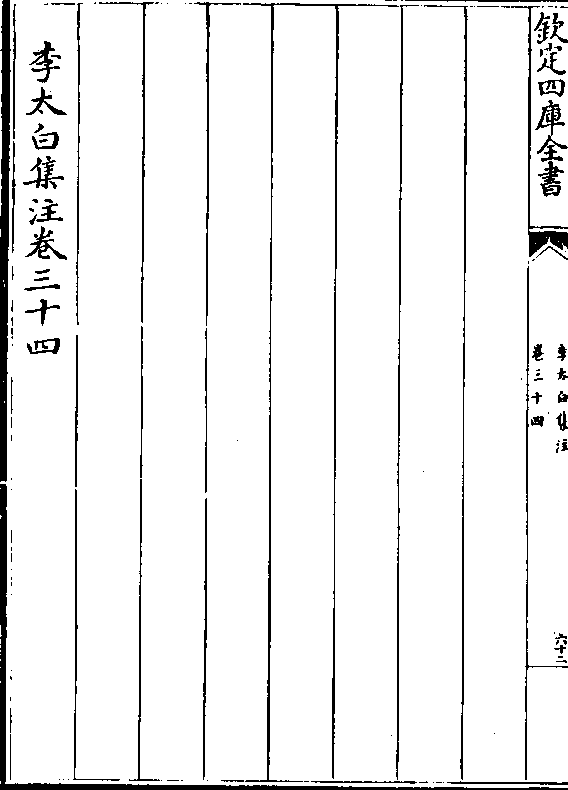 欽定四庫全書
李太白集注
卷三十四
六十二
李太白集注卷三十四